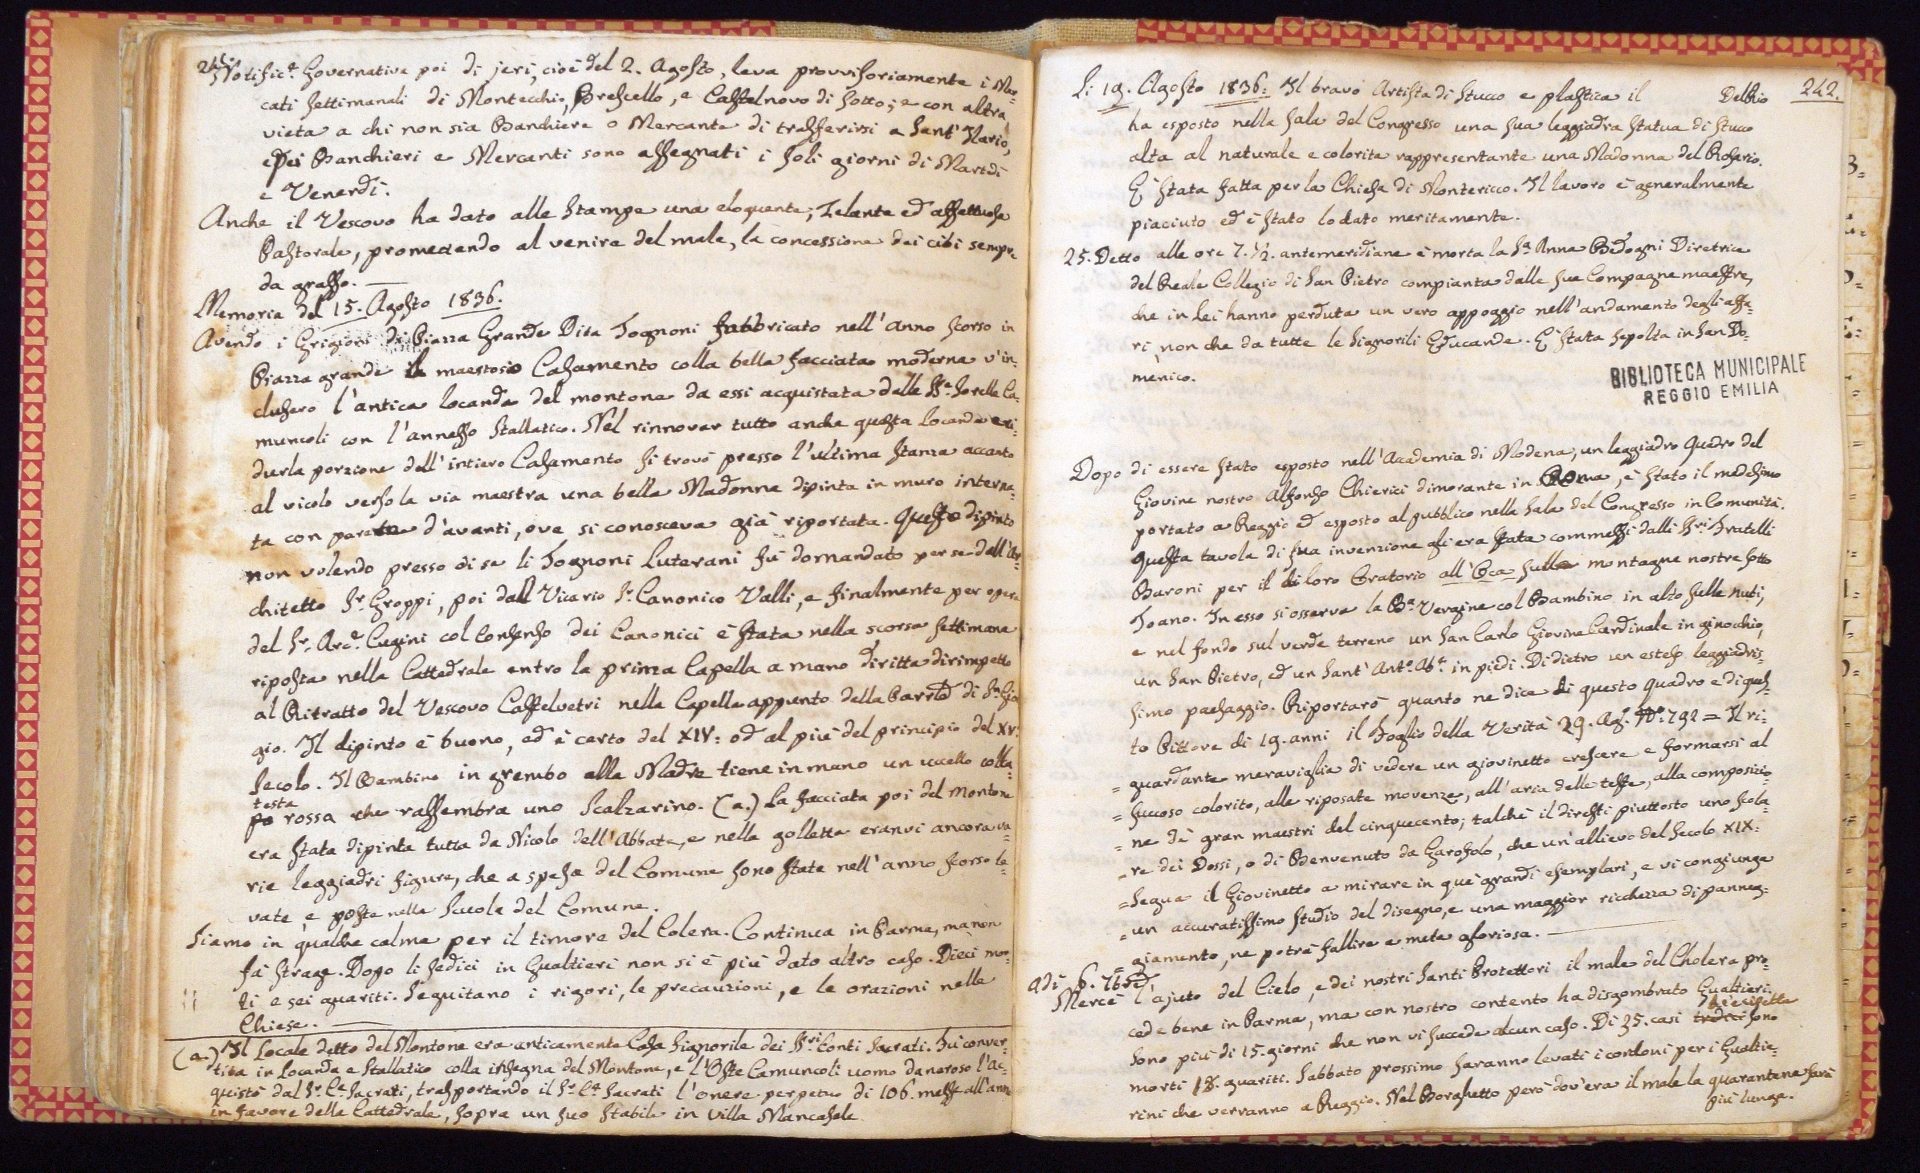 241.
Notific.ª Governativa poi di jeri, cioè del 2. Agosto, leva provvisoriamente i Mer-
cati settimanali di Montecchio, Brescello, e Castelnovo di Sotto; e con altra
vieta a chi non sia Banchiere o Mercante di trasferirsi a Sant'Ilario,
e pei Banchieri e Mercanti sono assegnati i soli giorni di Martedì
e Venerdì.
Anche il Vescovo ha dato alle stampe una eloquente, zelante ed affettuosa
Pastorale, promettendo al venire del male, la concessione dei cibi sempre
da grasso.
Memoria del 15. Agosto 1836.
Avendo i Grigioni di Piazza Grande Ditta Tognoni fabbricato nell'anno scorso in
Piazza grande il maestoso Casamento colla bella facciata moderna v'in-
clusero l'antica locanda del montone da essi acquistata dalle S.e Sorelle Ca-
muncoli con l'annesso stallatico. Nel rinnovar tutto anche questa locanda e ri-
durla porzione dell'intiero Casamento si trovò presso l'ultima stanza accanto
al vicolo verso la via maestra una bella Madonna dipinta in muro interna-
ta con parete d'avanti, ove si conosceva già riportata. Questo dipinto
non volendo presso di se li Tognoni Luterani fù domandato per se dall'Ar-
chitetto S.r Groppi, poi dall Vicario S.r Canonico Valli, e finalmente per opera
del S.r Arc.e Cugini col consenso dei Canonici è stata nella scorsa settimana
riposta nella Cattedrale entro la prima Capella a mano diritta dirimpetto
al Ritratto del Vescovo Castelvetri nella Capella appunto della Parr.a di S.n Gia
gio. Il dipinto è buono, ed è certo del XIV: od al più del principio del XV:
secolo. Il Bambino in grembo alla Madre tiene in mano un uccello colla
testa
rossa che rassembra uno Scalzarino. (a.) La facciata poi del Montone
era stata dipinta tutta da Nicolo dell'Abbate, e nelle gollette eranvi ancora va-
rie leggiadri figure, che a spesa del Comune sono state nell'anno scorso le-
vate e poste nella Scuola del Comune.
Siamo in qualche calma per il timore del Colera. Continua in Parma, ma non
fà strage. Dopo li sedici in Gualtieri non si è più dato altro caso. Dieci mor-
ti e sei guariti. Seguitano i rigori, le precauzioni, e le orazioni nelle
Chiese.
(a.) Il Locale detto del Montone era anticamente Casa Signorile dei S.ri Conti Sacrati. Fu conver-
tita in Locanda e Stallatico colla insegna del Montone, e l'Oste Camuncoli uomo danaroso l'ac-
quistò dal S.r C.e Sacrati, trasportando il S.r C.e Sacrati l'onere perpetuo di 106. messe all'anno
in favore della Cattedrale, sopra un suo stabile in Villa Mancasale
242.
Li 19. Agosto 1836: Il bravo Artista di stucco e plastica il Delhio
ha esposto nella sala del Congresso una sua leggiadra statua di stucco
alta al naturale e colorita rappresentante una Madonna del Rosario.
È stata fatta per la Chiesa di Montericco. Il lavoro è generalmente
piaciuto ed è stato lodato meritamente.
25. Detto alle ore 7. 1/2. antemeridiane è morta la S.ª Anna Bedogni Diretrice
del Reale Collegio di San Pietro compianta dalle sue Compagne maestre,
che in lei hanno perduta un vero appoggio nell'andamento degli affa-
ri, non che da tutte le Signorili Educande. È stata sepolta in San Do-
menico.
BIBLIOTECA MUNICIPALE
REGGIO EMILIA
Dopo di essere stato esposto nell'Academia di Modena, un leggiadro Quadro del
Giovine nostro Alfonso Chierici dimorante in Roma, è stato il medesimo
portato a Reggio ed esposto al pubblico nella sala del Congresso in Comunità.
Questa tavola di sua invenzione gli era stata commessa dalli S.ri Fratelli
Baroni per il di loro Oratorio all'Oca sulle montagne nostre sotto
Toano. In esso si osserva la B.ª Vergine col Bambino in alto sulle nubi,
e nel fondo sul verde terreno un San Carlo Giovine Cardinale in ginocchio,
un San Pietro, ed un Sant'Ant.o Ab.e in piedi. Di dietro un esteso leggiadris-
simo paesaggio. Riporterò quanto ne dice di questo quadro e di ques-
to Pittore di 19. anni il Foglio della Verità 29. Ag.o N.o 792 = Il ri-
= guardante meraviglia di vedere un giovinetto crescere e formarsi al
= succoso colorito, alle riposate movenze, all'aria delle teste, alla composizio-
= ne dà gran maestri del cinquecento; talchè il diresti piuttosto uno scola-
= re dei Dossi, o di Benvenuto da Garofolo, che un'allievo del Secolo XIX:
= Segua il Giovinetto a mirare in que' grandi esemplari, e vi congiunga
= un accuratissimo studio del disegno, e una maggior ricchezza di panneg-
= giamento, ne potrà fallire a meta gloriosa.
adi 6. 7bre
Mercè l'ajuto del Cielo, e dei nostri Santi Protettori il male del Cholera pro-
cede bene in Parma, ma con nostro contento ha disgombrato Gualtieri.
Sono più di 15. giorni che non vi succede alcun caso. Di 35. casi tredici sono
diecisette
morti 18. guariti. Sabbato prossimo saranno levati i cordoni per i Gualtie-
rini che verranno a Reggio. Nel Borghetto però dov'era il male la quarantena sarà
più lunga.